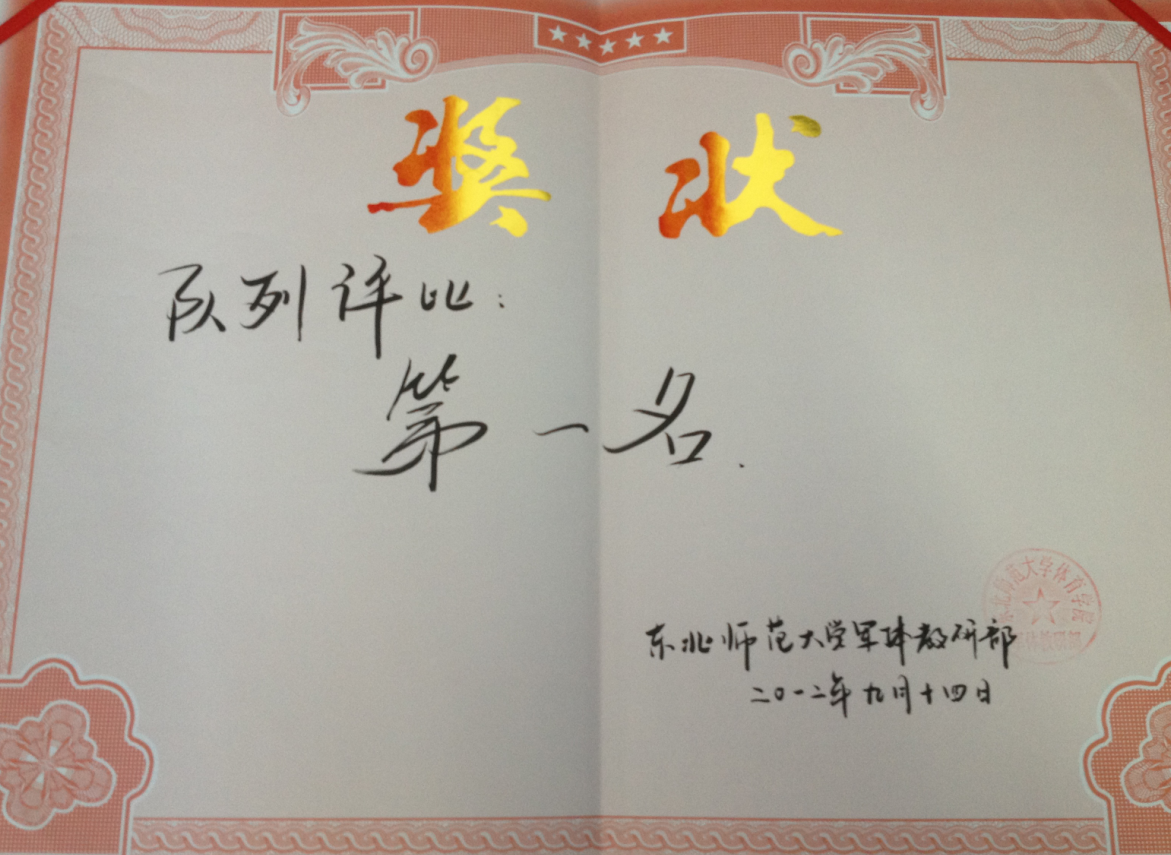 奖状
队列评比:
第一名.
东北师范大学体育学院
东北师范大学军体教研部
二〇一二年九月十四日